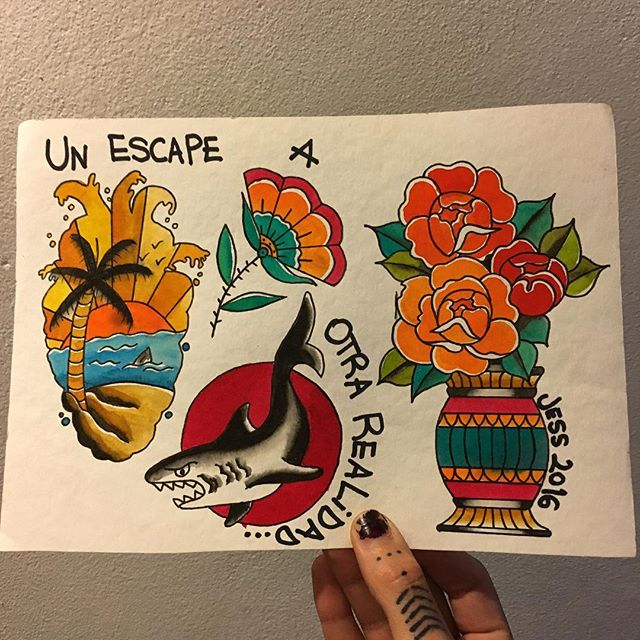 UN ESCAPE
OTRA REALIDAD...
JESS 2016